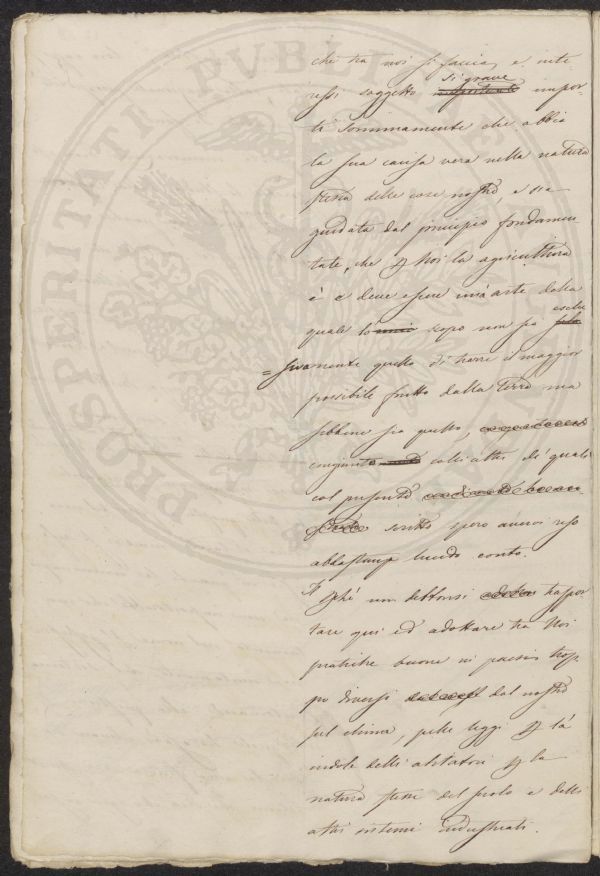 che tra noi si faccia, e inte-
ressi soggetto si grave impor-
ti sommamente che abbia
la sua causa vera nella natura
stessa delle cose nostre, e sia
guidata dal principio fondamen-
tale, che Noi la agricoltura
è e deve essere un'arte della
quale lo scopo non sia esclu
=sivamente quello di trarre il maggior
possibile frutto dalla Terra ma
sebbene sia quello,
congiunto cogli altri de quali
col presente
scritto spero avervi reso
abbastanza lucido conto.
non debbonsi traspor
tare qui ed adottare tra Noi
pratiche buone in paesi trop-
po diversi dal nostro
pel clima, pelle leggi la
indole delli abitatori la
natura stessa del suolo e delli
altri sistemi industriali.
PROSPERITATI PUBLICAE